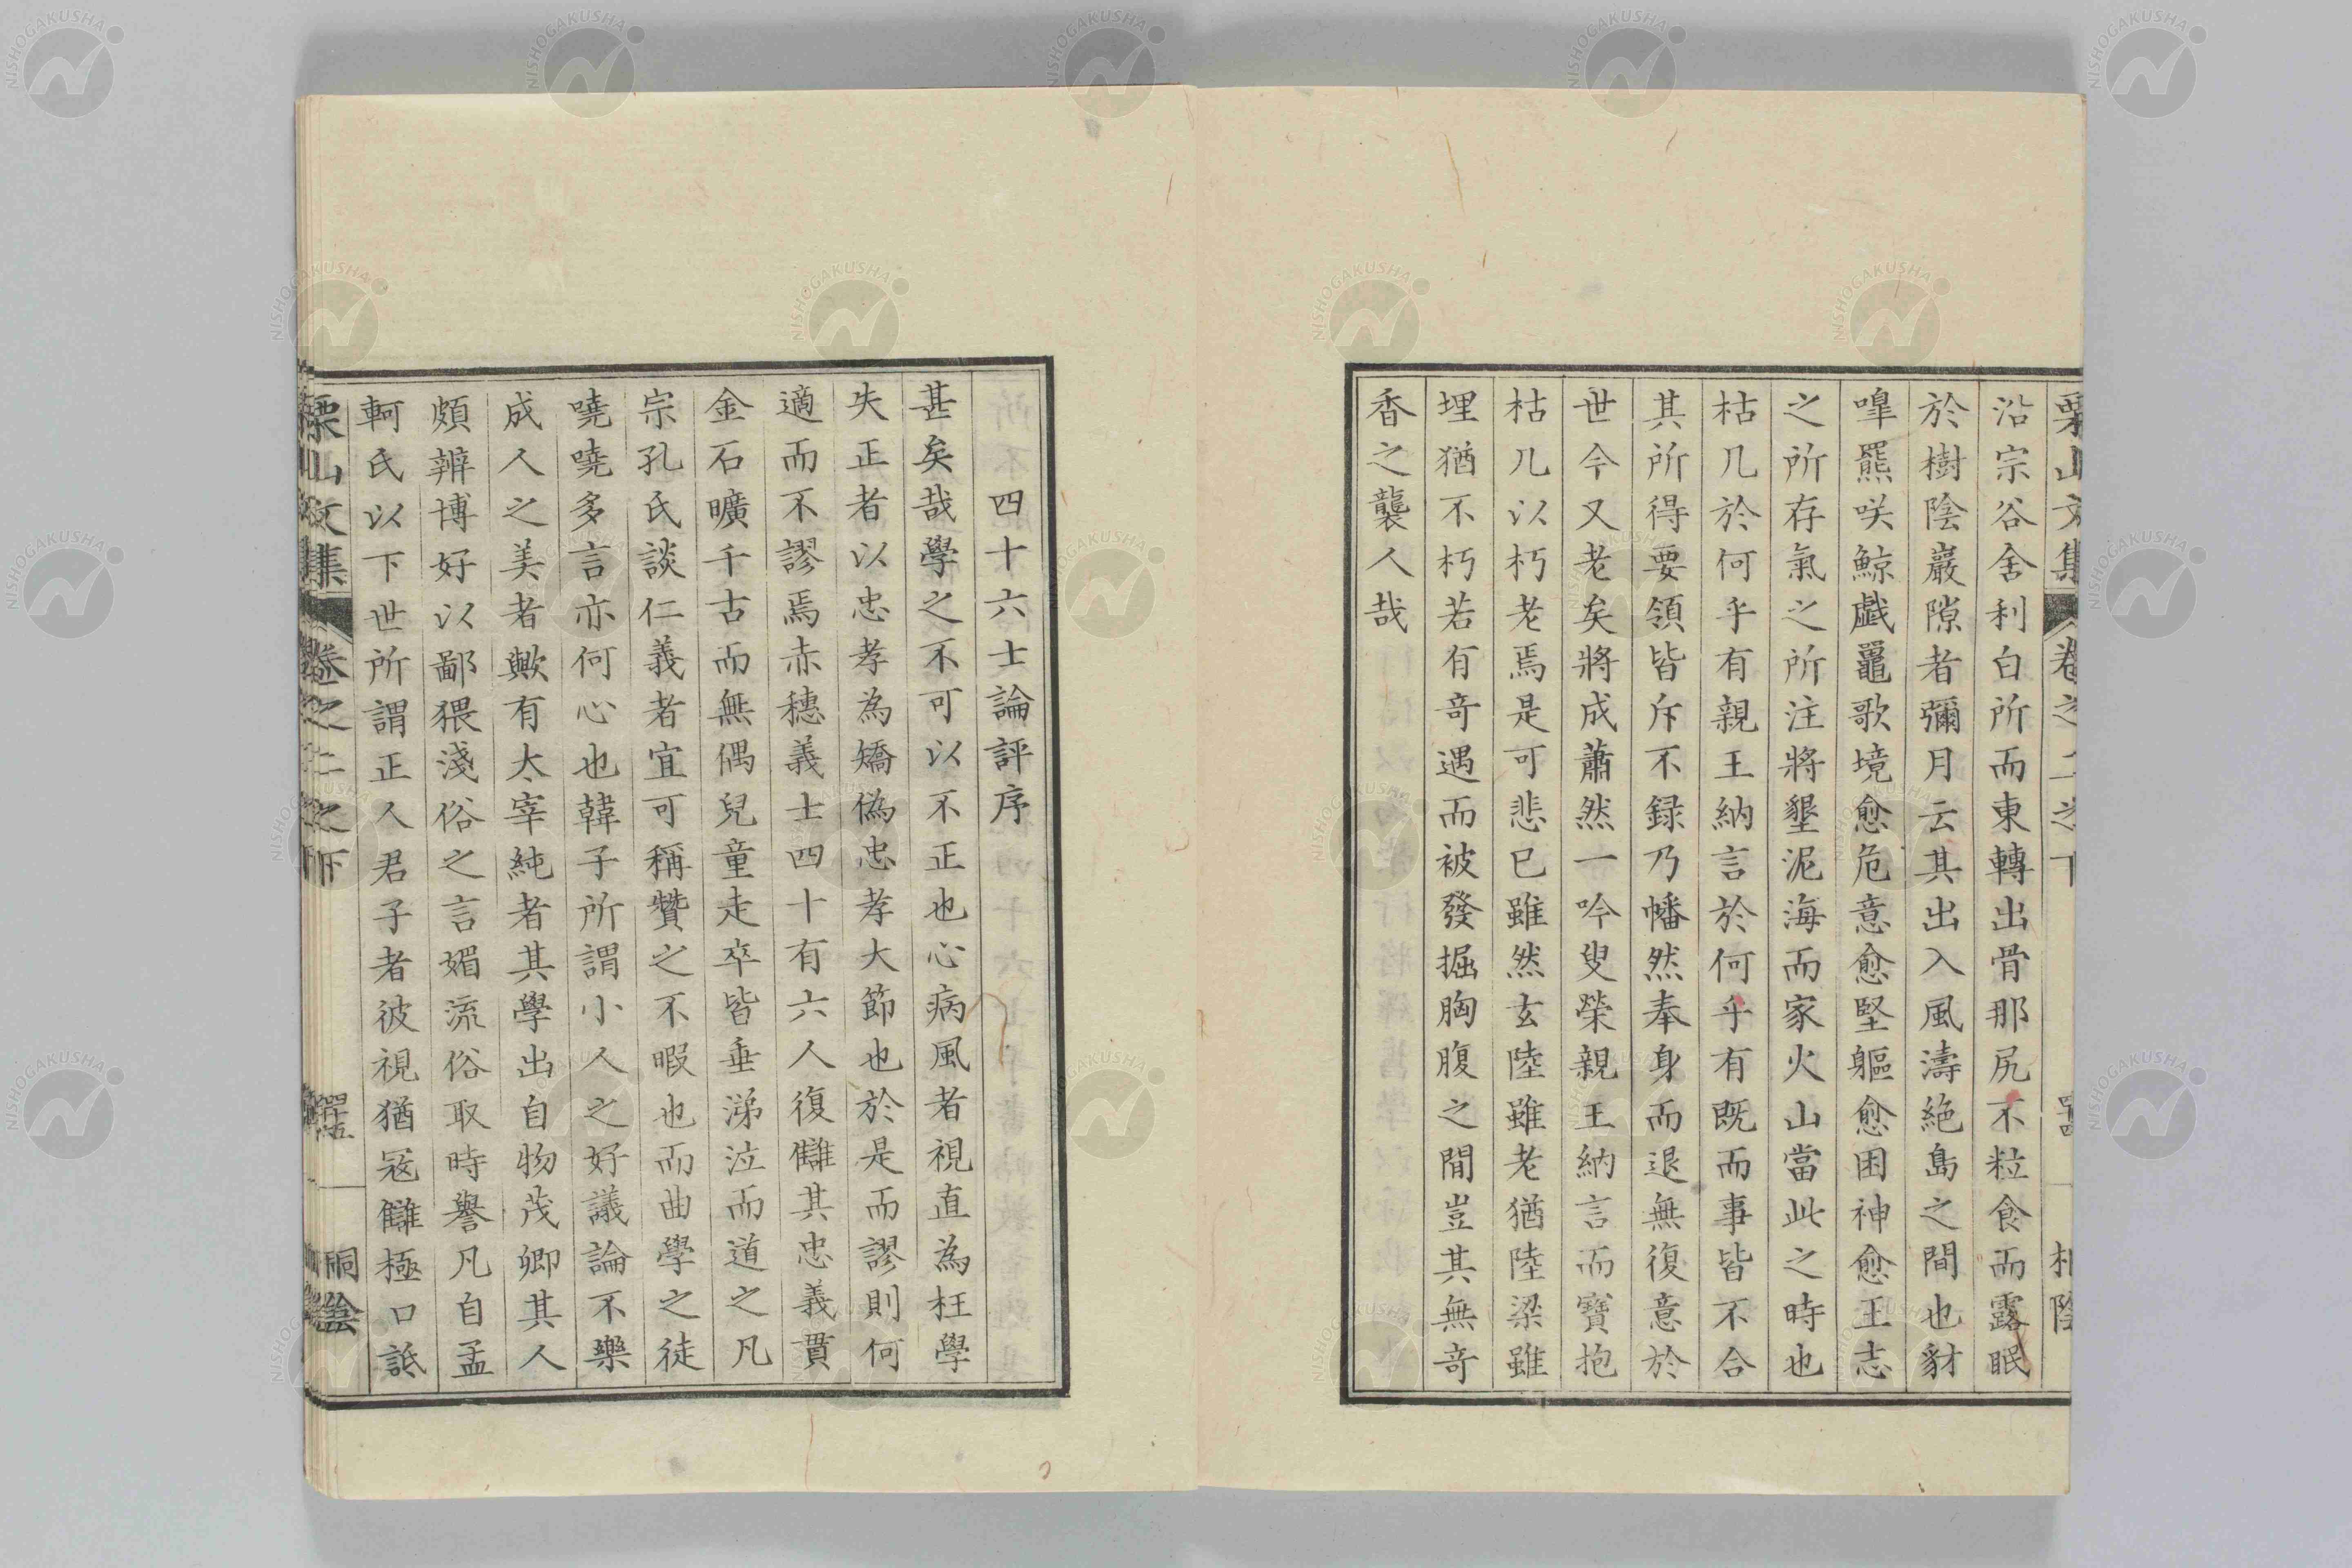 沿宗谷舍利白所而東轉出骨那尻不粒食而露眠
於樹陰巖隙者彌月云其出入風濤絶島之間也豺
嘷羆咲鯨戯鼉歌境愈危意愈堅軀愈困神愈王志
之所存氣之所注將墾泥海而家火山當此之時也
枯几於何乎有親王納言於何乎有既而事皆不合
其所得要領皆斥不録乃幡然奉身而退無復意於
世今又老矣將成蕭然一吟叟榮親王納言而寶抱
枯几以朽老焉是可悲已雖然玄陸雖老猶陸梁雖
埋猶不朽若有奇遇而被發掘胸腹之間豈其無奇
香之襲人哉
四十六士論評序
甚矣哉學之不可以不正也心病風者視直為枉學
失正者以忠孝為矯偽忠孝大節也於是而謬則何
適而不謬焉赤穗義士四十有六人復讎其忠義貫
金石曠千古而無偶兒童走卒皆垂涕泣而道之凡
宗孔氏談仁義者宜可稱贊之不暇也而曲學之徒
嘵嘵多言亦何心也韓子所謂小人之好議論不樂
成人之美者歟有太宰純者其學出自物茂卿其人
頗辨博好以鄙猥淺俗之言媚流俗取時譽凡自孟
軻氏以下世所謂正人君子者彼視猶冦讎極口詆
栗山文集 卷之二之下